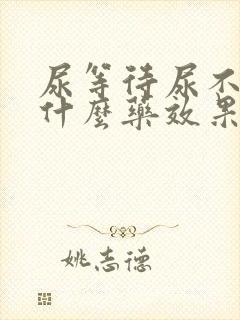 尿等待尿不
什麼藥效果
姚志德